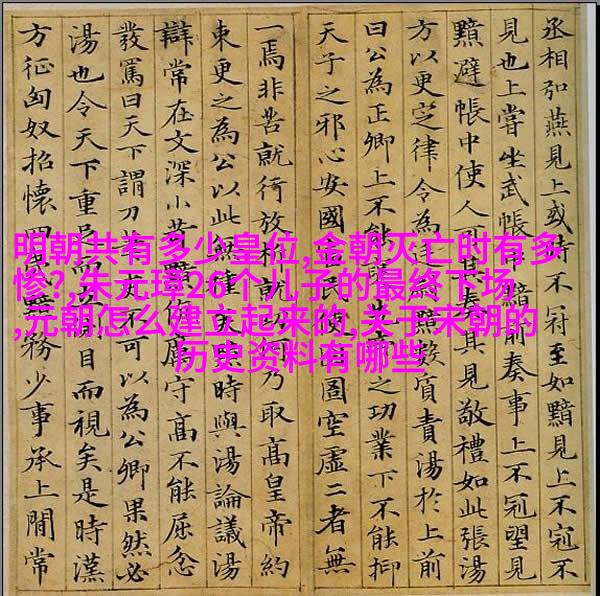 丞相弘燕見上或時不冠至如黯見上不冠不
見也上嘗坐武帳黯前奏事上不冠望見
黯避帳中使人可其奏其見敬禮如此張湯
方以更定律令為黯數質責湯於上前
曰公為正卿上不能之功業下不能抑
天子之邪心安國民使圄空虛二者無
一焉非苦就行放析就乃取高皇帝約
束更之為公以此無種矣時與湯論議湯
辯常在文深小苛厲守高不能屈忿
發罵曰天下謂刀不可以為公卿果然必
湯也令天下重足目而視矣是時漢
方征匈奴招懷四務少事承上閒常
明朝共有多少皇位,金朝灭亡时有多
惨?,朱元璋26个儿子的最终下场
,元朝怎么建立起来的,关于宋朝的
历史资料有哪些